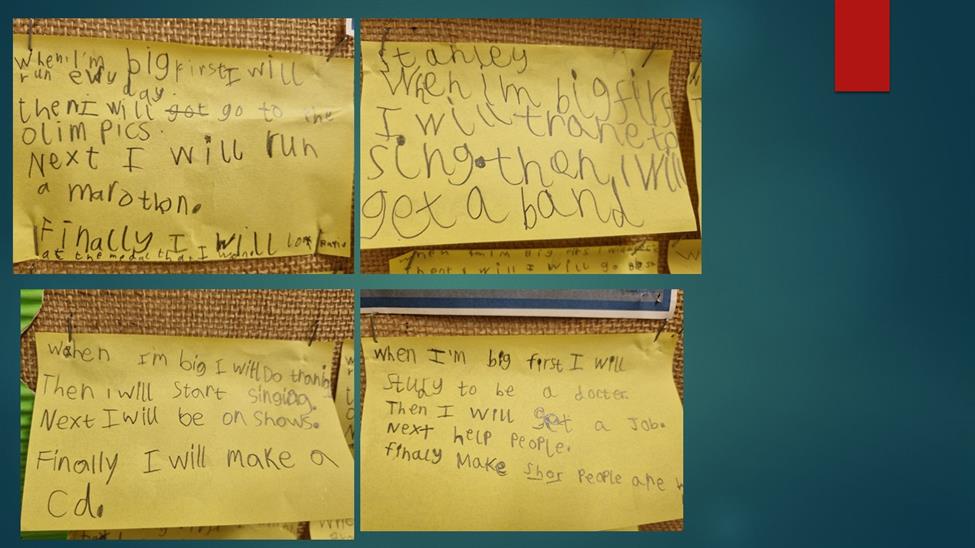 When I'm big first I will
run evry day.
then I will got go to the
Olimpics.
Next I will run
a marothon.
Finally I will look
at the medal that I
Stanley
When im big firs
I will trane to
sing. then I will
get a band
When I'm big I will Do
Then I will start singing.
Next I will be on shows.
Finally I will make a
Cd.
when I'm big first I will
study to be a docter.
Then I will get a Job.
Next help People.
finaly make shor People are